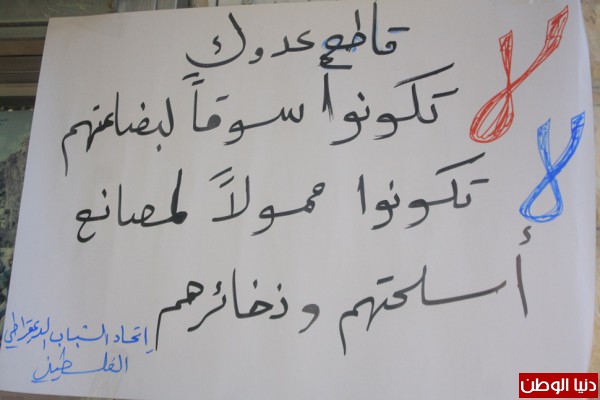 قاطع عدوك
لا تكونوا سوقاً لبضاعتهم
لا تكونوا ممولاً لمصانع
أسلحتهم وذخائرهم
إتحاد الشباب الديمقراطي
الفلسطيني
دنيا الوطن